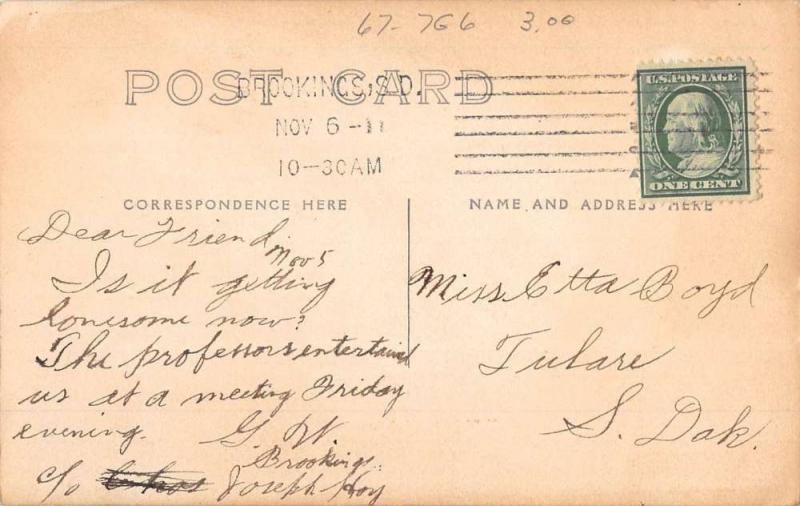 67-766 3.00
POST CARD
BROOKINGS, S.D.
NOV 6 - 11
10-30AM
U.S. POSTAGE
ONE CENT
CORRESPONDENCE HERE
NAME AND ADDRESS HERE
Dear Friend,
Nov 5
Is it getting
lonesome now?
The professors entertained
us at a meeting Friday
evening. G. W.
Brookings.
c/o Joseph Hoy
Miss Etta Boyd
Tulare
S. Dak.